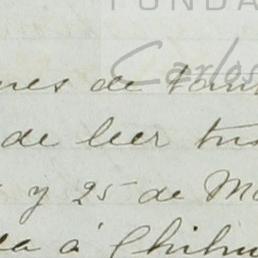 FUNDA
Carlos
de
de leer tus
y 25 de Ma
a á Chihu